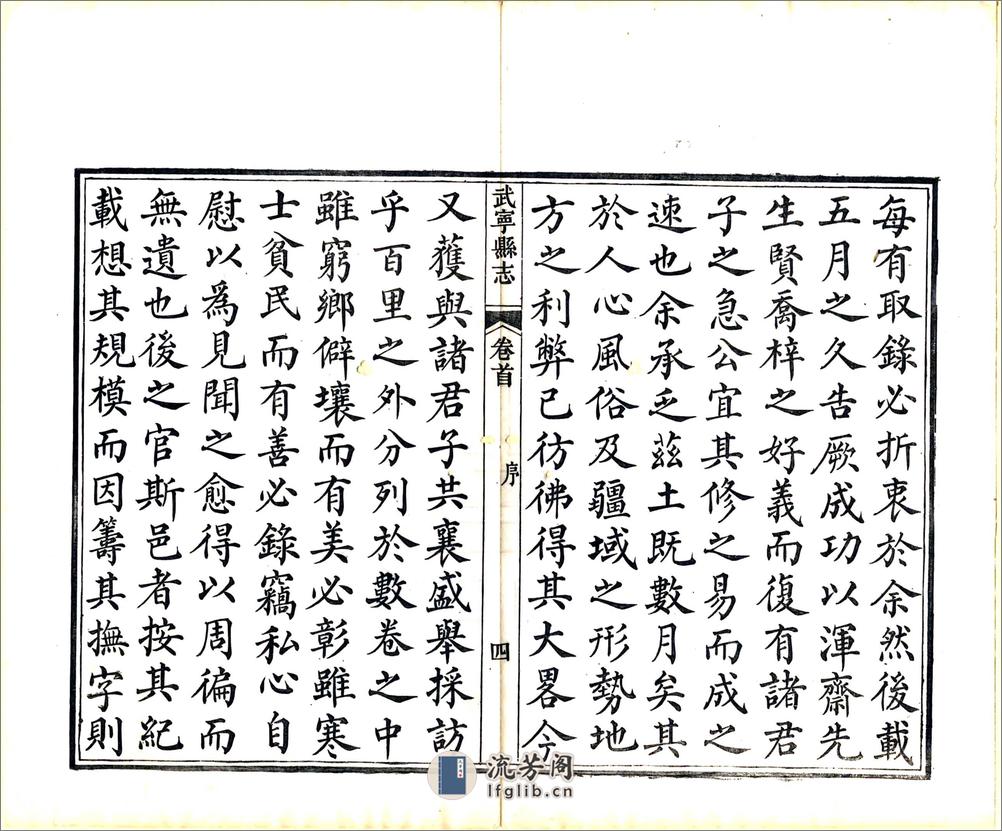 每有取錄必折衷於余然後載
五月之久告厥成功以渾齋先
生賢喬梓之好義而復有諸君
子之急公宜其修之易而成之
速也余承乏茲土既數月矣其
於人心風俗及疆域之形勢地
方之利弊已彷彿得其大畧今
武寧縣志
卷首
序
四
又獲與諸君子共襄盛舉採訪
乎百里之外分列於數卷之中
雖窮鄉僻壤而有美必彰雖寒
士貧民而有善必錄竊私心自
慰以為見聞之愈得以周徧而
無遺也後之官斯邑者按其紀
載想其規模而因籌其撫字則
流芳阁
lfglib.cn